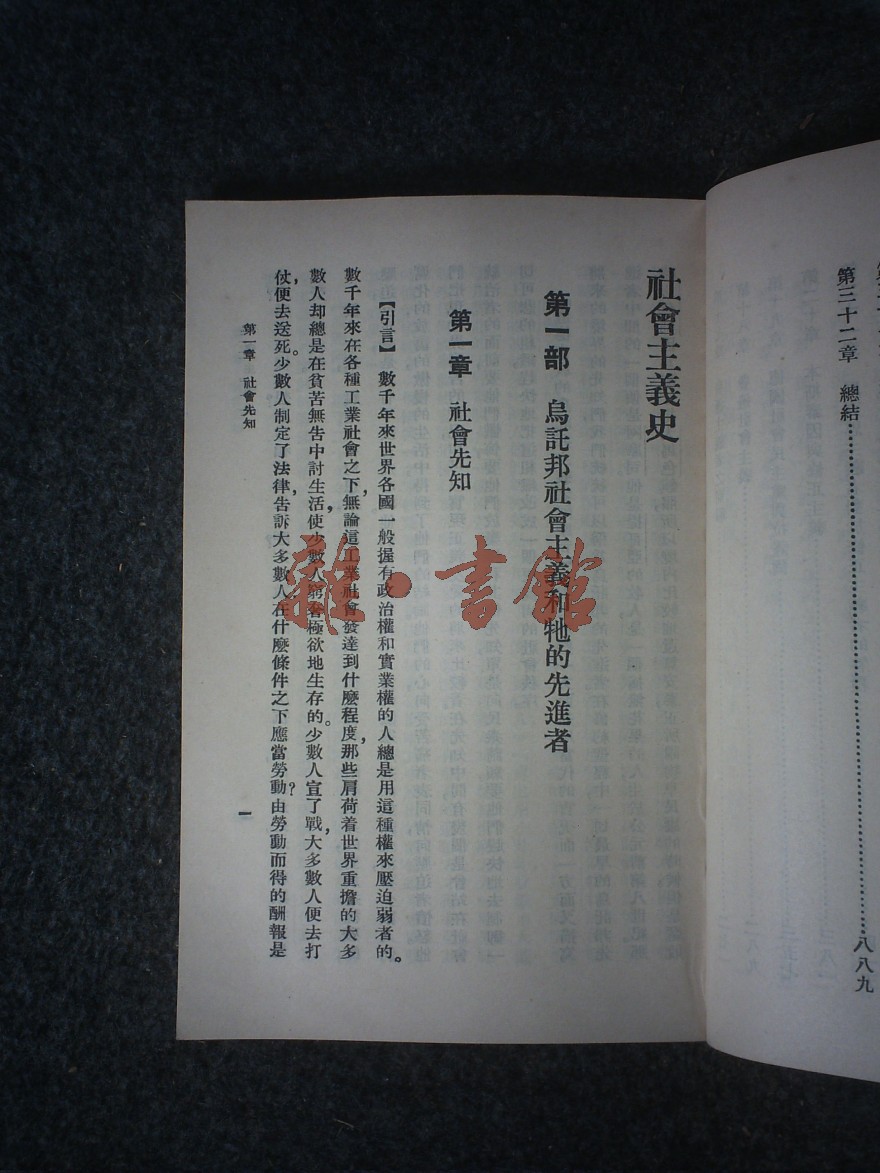 第三十二章 總結……八八九
社會主義史
第一部 烏託邦社會主義和牠的先進者
第一章 社會先知
【引言】 數千年來世界各國一般握有政治權和實業權的人總是用這種權來壓迫弱者的。
數千年來在各種工業社會之下,無論這工業社會發達到什麼程度,那些肩荷着世界重擔的大多
數人却總是在貧苦無告中討生活,使少數人窮奢極欲地生存的。少數人宣了戰,大多數人便去打
仗,便去送死。少數人制定了法律,告訴大多數人在什麼條件之下應當勞動?由勞動而得的酬報是
第一章 社會先知
一
雜·書館